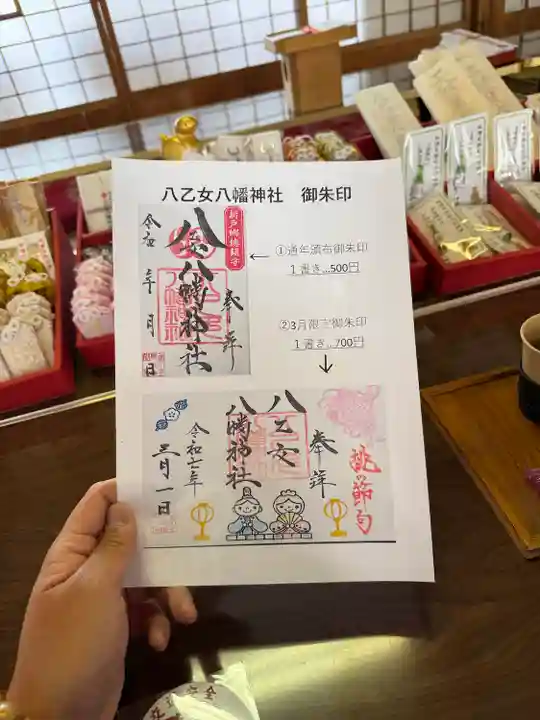 八乙女八幡神社　御朱印
新戸郷総鎮守
奉拝
八乙女八幡神社
令和　年　月　日
①通年頒布御朱印
1書き…500円
②3月限定御朱印
1書き…700円
桃の節句
奉拝
八乙女
八幡神社
令和七年
三月一日